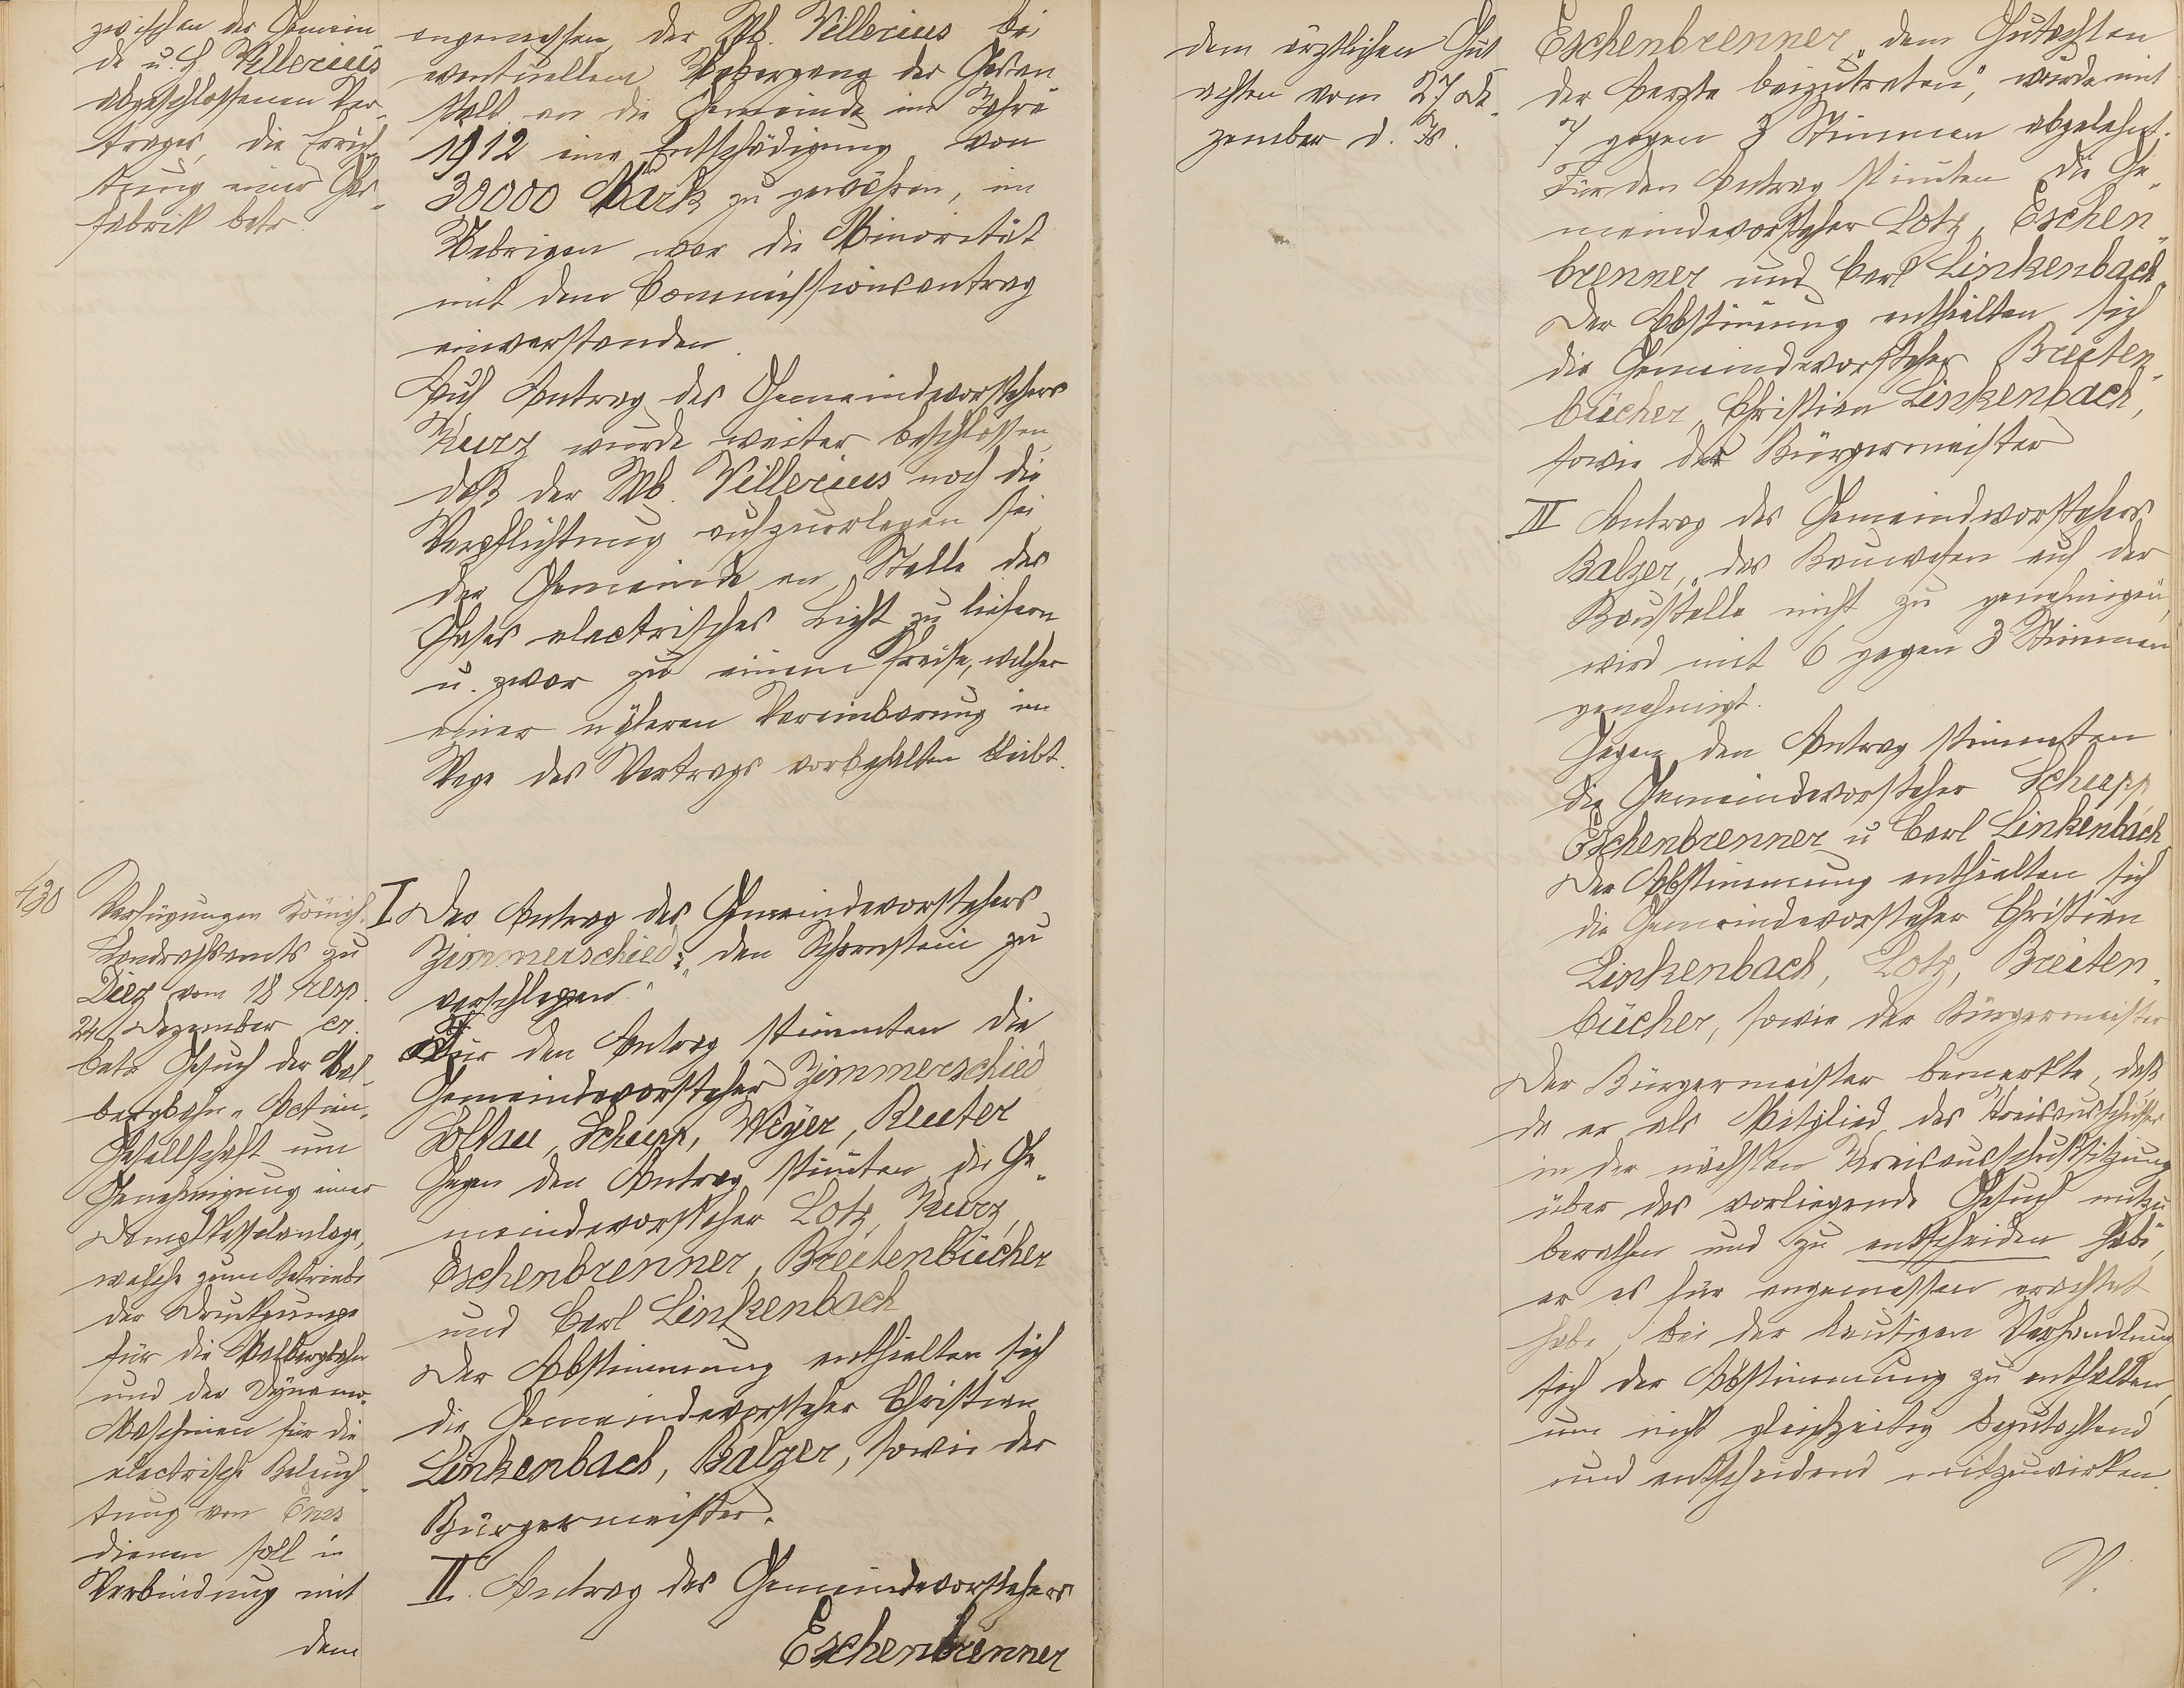 zwischen der Gemein
de u. H Villerius
abgeschlossenen Ver-
trages, die Errich-
tung einer Gas-
fabrik betr.
angemessen, der Wb. Villerius bei
eventuellem Uebergang der Gasan
stalt an die Gemeinde im Jahre
1912 eine Entschädigung von
30000 Mark zu gewähren, im
Uebrigen war die Minorität
mit dem Commissionsantrag
einverstanden.
Auf Antrag des Gemeindevorstehers
Kurz wurde weiter beschlossen,
daß der Wb. Villerius noch die
Verpflichtung aufzuerlegen sei
der Gemeinde an Stelle des
Gases electrisches Licht zu liefern
u. zwar zu einem Preise, welcher
einer näheren Vereinbarung im
Wege des Vertrags vorbehalten bleibt.
430
Verfügungen Königl.
Landrathsamts zu
Diez vom 18 resp.
24 Dezember cr.
betr. Gesuch der Mal-
bergbahn-Actien-
Gesellschaft um
Genehmigung einer
Dampfkesselanlage,
welche zum Betriebe
der Druckpumpe
für die Malbergbahn
und der Dynamo-
Maschinen für die
electrische Beleuch-
tung von Ems
dienen soll in
Verbindung mit
dem
I Der Antrag des Gemeindevorstehers
Zimmerschied: „den Schornstein zu
verschlagen“
Für den Antrag stimmten die
Gemeindevorsteher Zimmerschied,
Soltau, Schupp, Meyer, Reuter
Gegen den Antrag stimten die Ge-
meindevorsteher Lotz, Kurz,
Eschenbrenner, Breitenbücher
und Carl Linkenbach
Der Abstimmung enthielten sich
die Gemeindevorsteher Christian
Linkenbach, Balzer, sowie der
Bürgermeister.
II. Antrag des Gemeindevorstehers
Eschenbrenner
dem ärztlichen Gut
achten vom 27 De-
zember d. Js.
Eschenbrenner „dem Gutachten
der Aerzte beizutreten“, wurde mit
7 gegen 3 Stimmen abgelehnt.
Für den Antrag stimten die Ge-
meindevorsteher Lotz, Eschen-
brenner und Carl Linkenbach.
Der Abstimung enthielten sich
die Gemeindevorsteher Breiten-
bücher, Christian Linkenbach,
sowie der Bürgermeister
III Antrag des Gemeindevorstehers
Balzer, „das Bauwesen auf der
Baustelle nicht zu genehmigen“,
wird mit 6 gegen 3 Stimmen
genehmigt.
Gegen den Antrag stimmten
die Gemeindevorsteher Schupp,
Eschenbrenner u Carl Linkenbach
Der Abstimmung enthielten sich
die Gemeindevorsteher Christian
Linkenbach, Lotz, Breiten-
bücher, sowie der Bürgermeister
Der Bürgermeister bemerkte, daß
da er als Mitglied des Kreisausschusses
in der nächsten Kreisausschußsitzung
über das vorliegende Gesuch mitzu
berathen und zu entscheiden habe,
er es für angemessen erachtet
habe, bei der heutigen Verhandlung
sich der Abstimmung zu enthalten,
um nicht gleichzeitig begutachtend
und entscheidend mitzuwirken.
V.